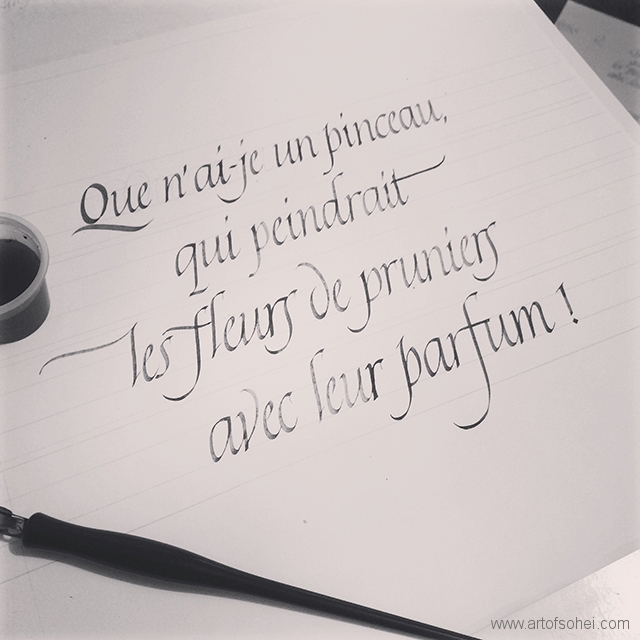 Que n'ai-je un pinceau,
qui peindrait
les fleurs de pruniers
avec leur parfum !
www.artofsohei.com